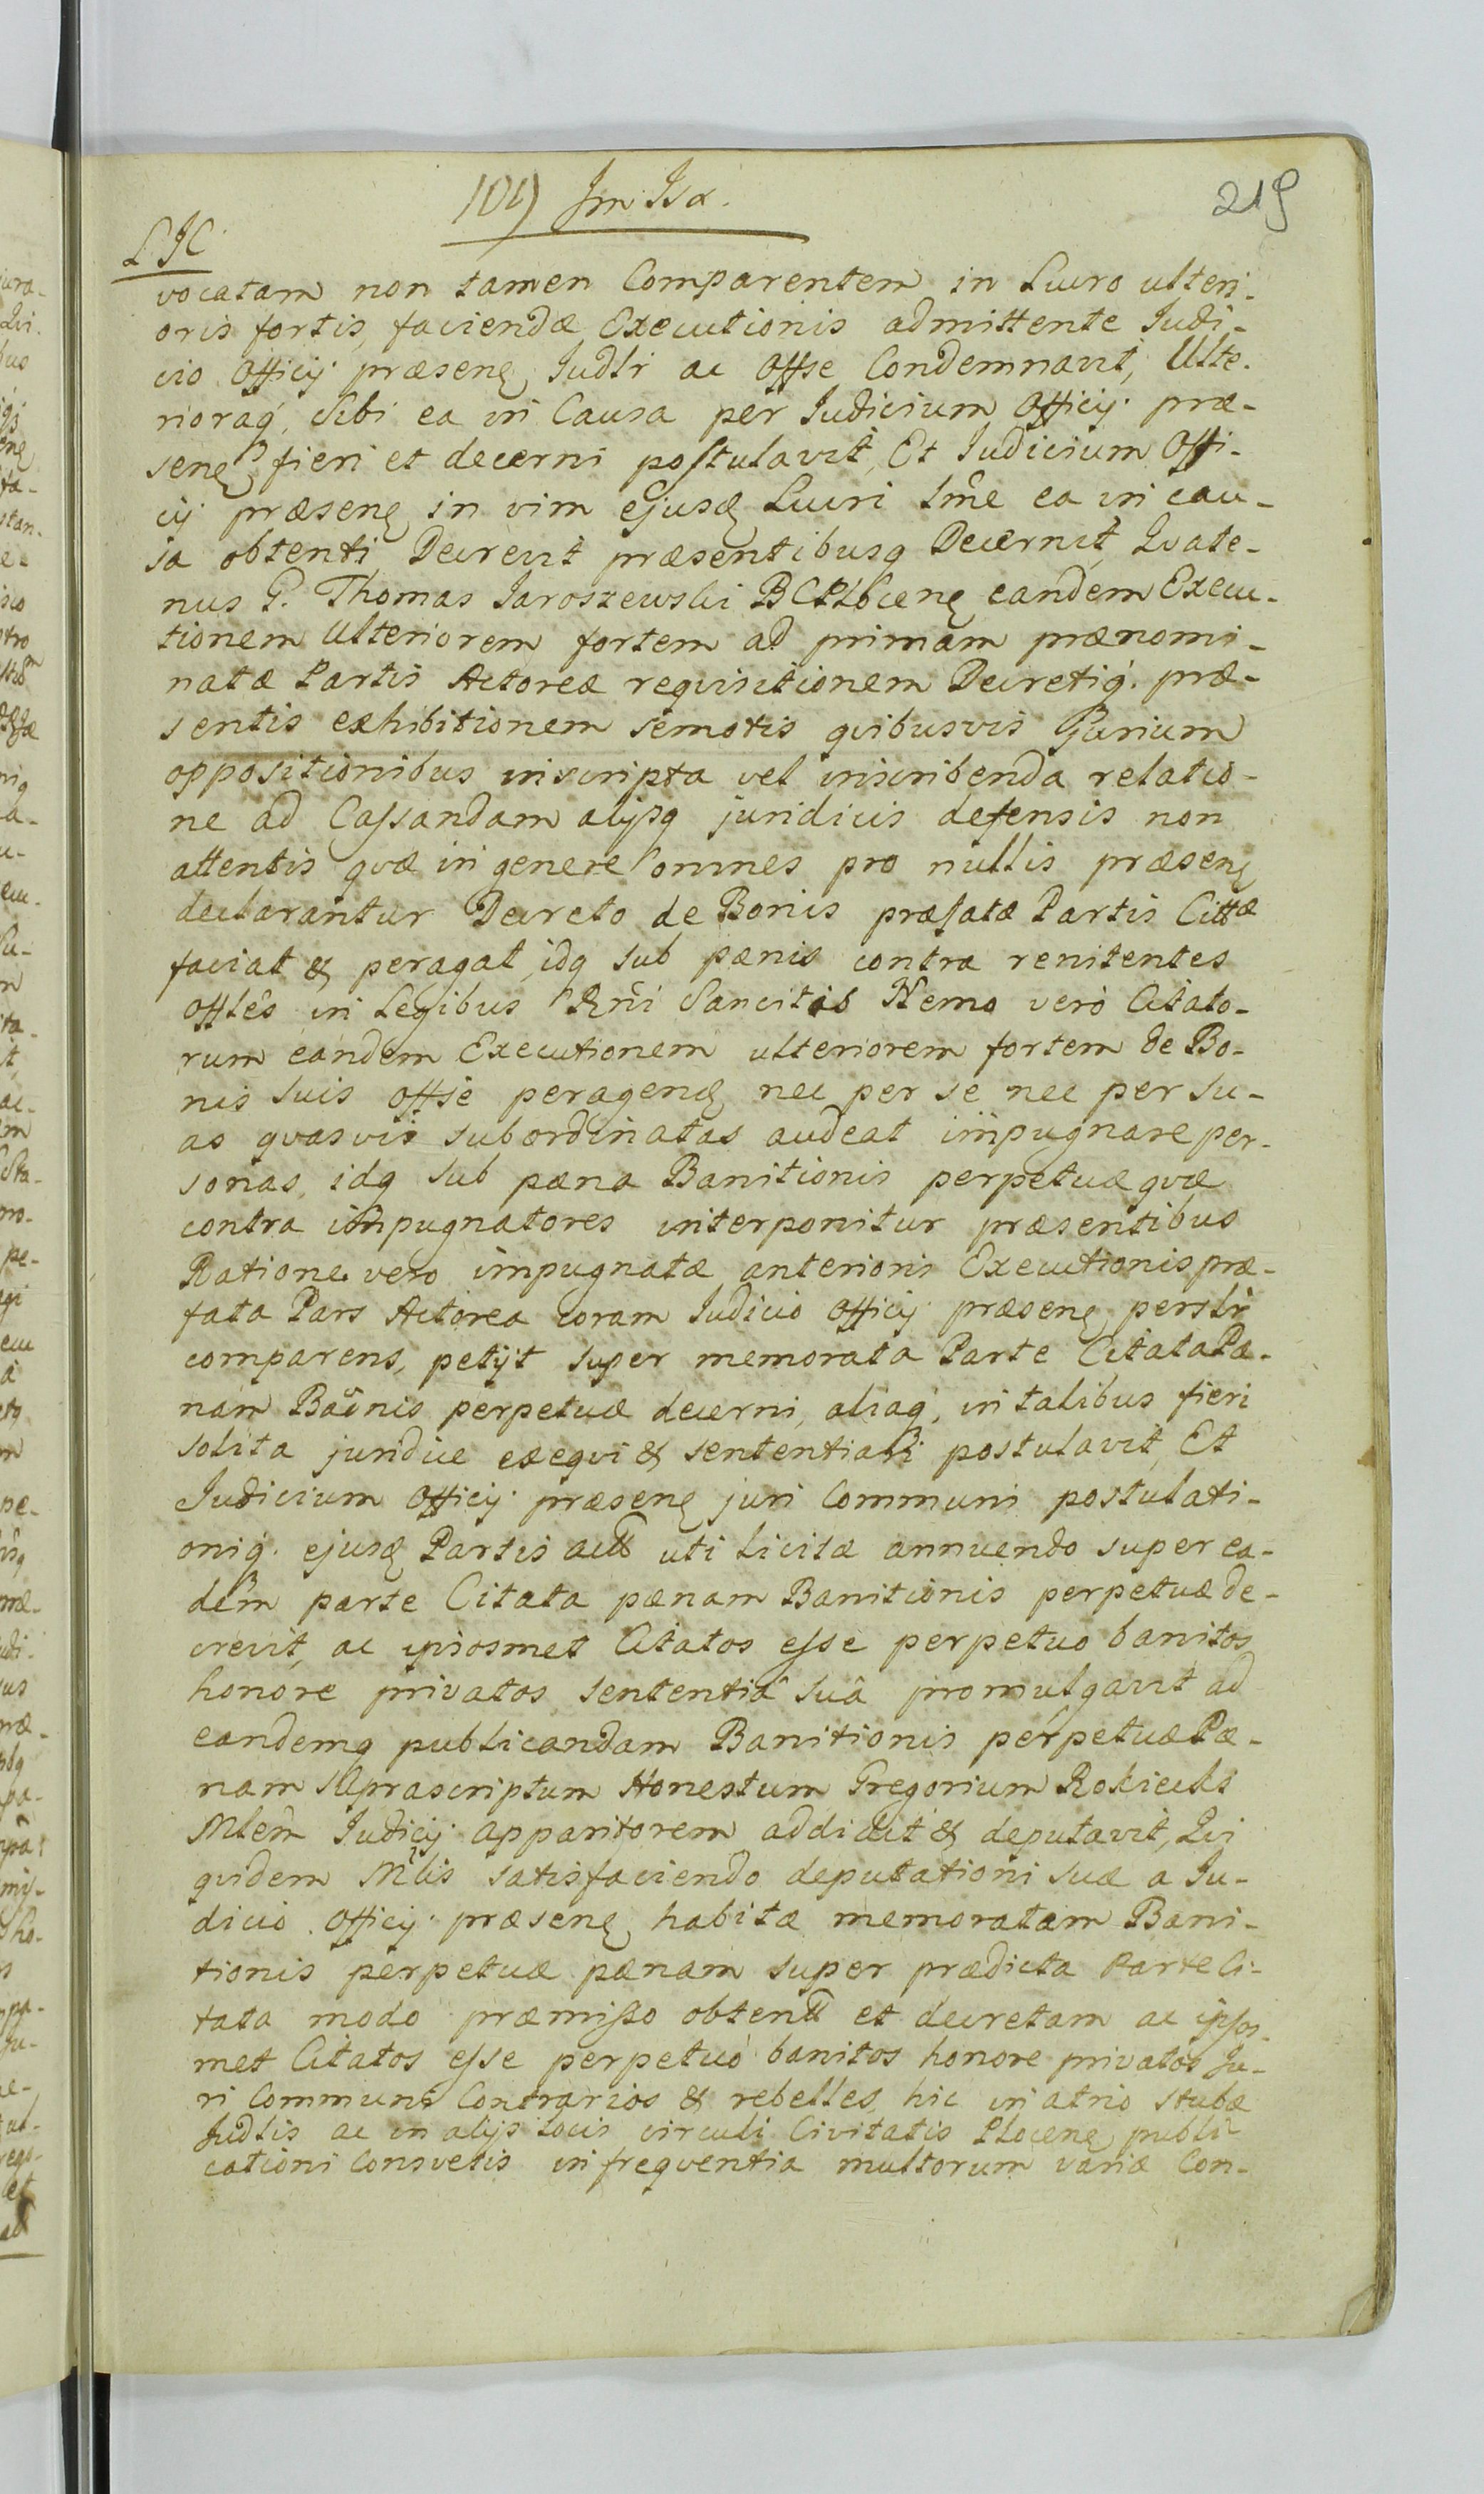 219
LJC
vocatam non tamen Comparentem in Lucro ulteri-
oris fortis, faciendæ Executionis admittente Judi-
cio Officij præsenę Judlr ac Offse Condemnavit, Ulte-
rioraq́, sibi ea in Causa per Judicium Officij præ-
senę fieri et decerni postulavit, Et Judicium Offi-
cij præsenę in vim ejusđ Lucri Smẽ ea in cau-
sa obtenti, Decrevit præsentibusq Decernit, Qvate-
nus G. Thomas Jaroszewski BCPlocenę eandem Execu-
tionem Ulteriorem fortem ad primam prænomi-
natæ Partis Actoreæ requisitionem Decretiq́. præ-
sentis exhibitionem semotis qvibusvis Jurium
oppositionibus inscripta vel inscribenda relatio-
ne ad Cassandam alijsq juridicis defensis non
attentis qvæ in genere omnes pro nullis præsenę
declarantur Decreto de Bonis præfatæ Partis Cittæ
faciat & peragat, idq sub pænis contra renitentes
Offlẽs in Legibus Rñi Sancitis Nemo verò Citato-
rum eandem Executionem ulteriorem fortem de Bo-
nis suis offse peragenđ nec per se nec per su-
as qvasvis subordinatas audeat impugnare per-
sonas, idq sub pæna Banitionis perpetuæ qvæ
contra impugnatores interponitur præsentibus
Ratione vero impugnatæ anterioris Executionis præ-
fata Pars Actorea coram Judicio Officij præsenę perslr
comparens, petijt super memorata Parte Citata Pæ-
nam Baõnis perpetuæ decerni, aliaq́, in talibus fieri
solita juridice exeqvi & sententiari postulavit, Et
Judicium Officij præsenę juri Communi postulati-
oniq́. ejusđ Partis actæ uti licitæ annuendo super ea-
dem parte Citata pænam Banitionis perpetuæ de-
crevit, ac ipsosmet Citatos esse perpetuo banitos
honore privatos, sententiâ suâ promulgavit ad
eandemq publicandam Banitionis perpetuæ Pæ-
nam suprascriptum Honestum Gregorium Rokicki
Mlem Judicij apparitorem addidit & deputavit, Qvi
qvidem Mlis satisfaciendo deputationi suæ a Ju-
dicio Officij præsenę habitæ memoratam Bani-
tionis perpetuæ pænam super prædicta Parte Ci-
tata modo præmisso obtentã et decretam ac ipsos-
met Citatos esse perpetuò banitos honore privatos Ju-
ri Communi Contrarios & rebelles, hic in atrio stubæ
Judlis ac in alijs locis circuli Civitatis Plocenę publi-
cationi Consvetis in freqventia multorum variæ Con-